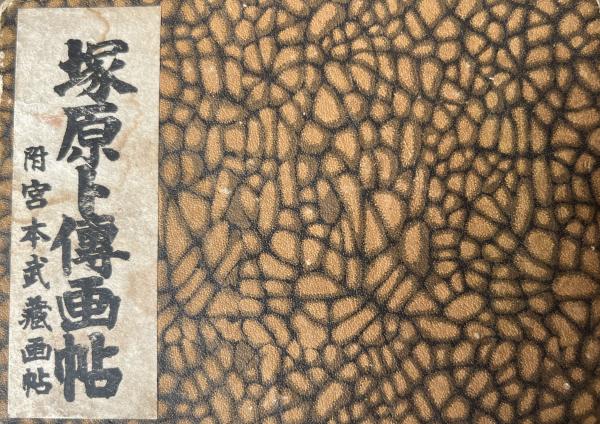 塚原卜傳画帖
附宮本武藏画帖